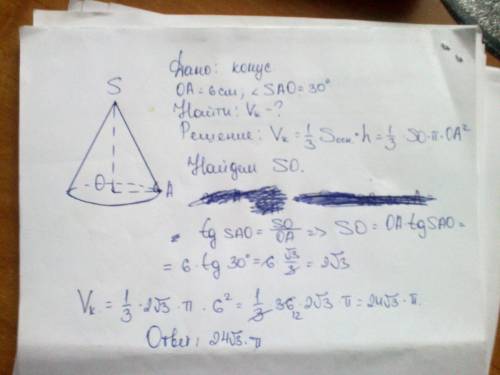 S
O
A
Дано: конус
OA = 6 см, ∠SAO = 30°
Найти: Vк - ?
Решение: Vк = 1/3 Sосн · h = 1/3 · SO · π · OA²
Найдем SO.
tg SAO = SO/OA => SO = OA · tg SAO =
= 6 · tg 30° = 6 √3/3 = 2√3
Vк = 1/3 · 2√3 · π · 6² = 1/3 · 36 12 · 2√3 · π = 24√3 · π.
Ответ: 24√3 · π